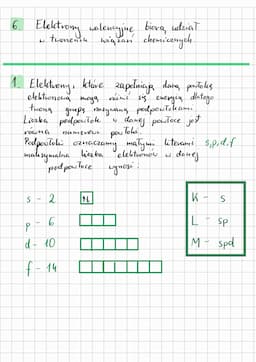 6. Elektrony walencyjne biorą udział
w tworzeniu wiązań chemicznych.
1. Elektrony, które zapełniają daną powłokę
elektronową mogą różnić się energią dlatego
tworzą grupy nazywaną podpowłokami.
Liczba podpowłok w danej powłoce jest
równa numerowi powłoki.
Podpowłoki oznaczamy małymi literami s,p,d,f
maksymalna liczba elektronów w danej
podpowłoce wynosi:
s - 2
p - 6
d - 10
f - 14
K - s
L - sp
M - spd